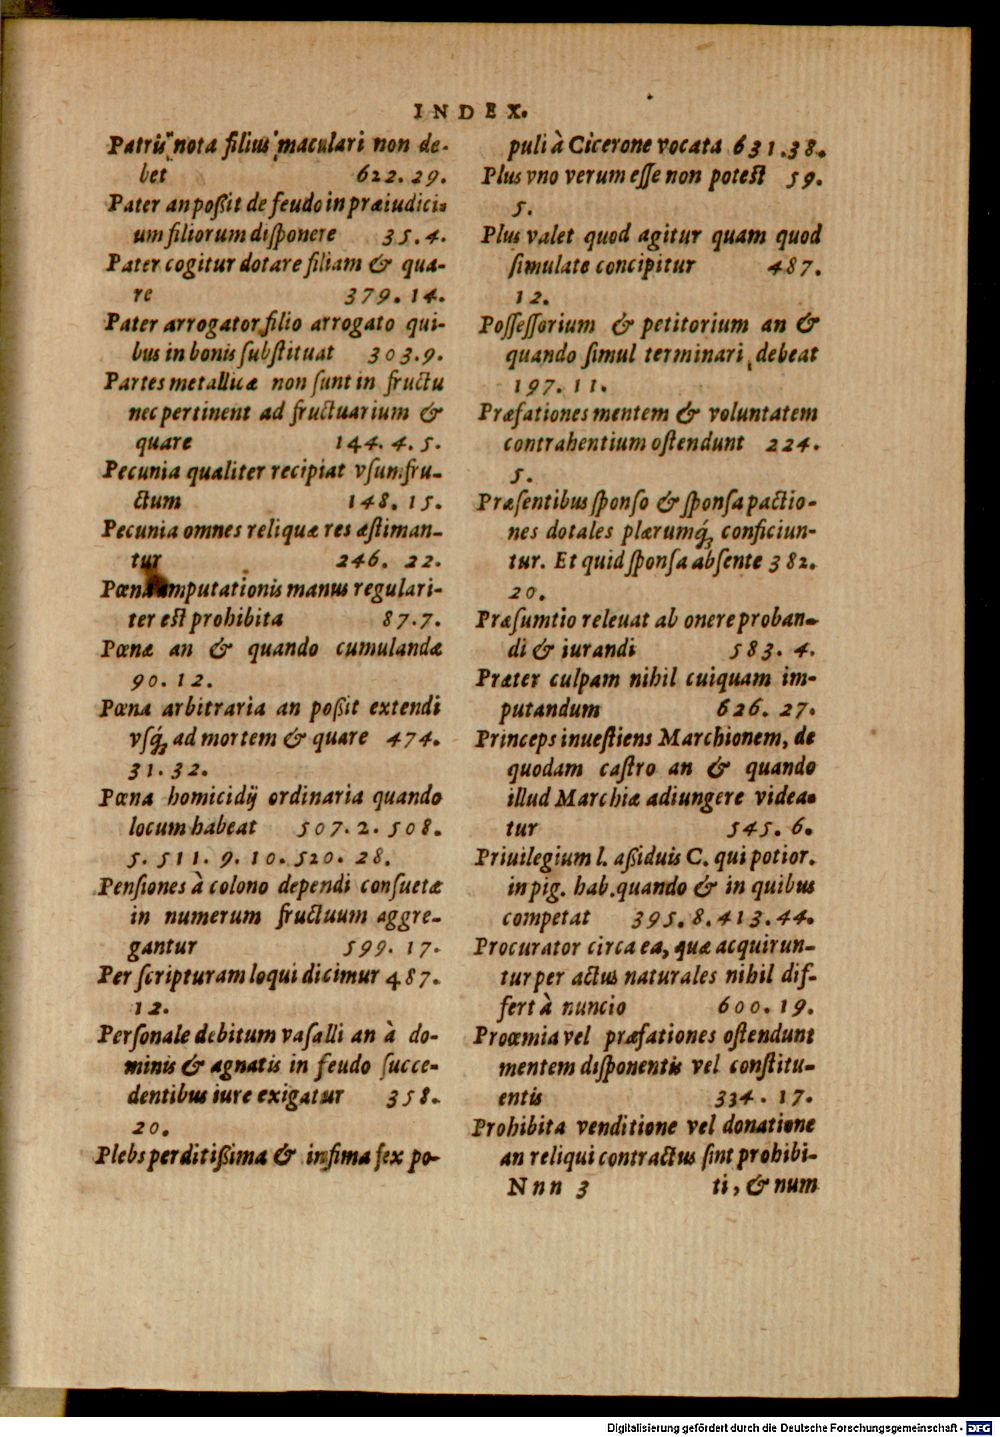 INDEX.
Patris nota filius maculari non de-
bet 622. 29.
Pater an poßit de feudo in præiudici-
um filiorum disponere 35. 4.
Pater cogitur dotare filiam & qua-
re 379. 14.
Pater arrogator filio arrogato qui-
bus in bonis substituat 303. 9.
Partes metallicæ non sunt in fructu
nec pertinent ad fructuarium &
quare 144. 4. 5.
Pecunia qualiter recipiat vsumfru-
ctum 148. 15.
Pecunia omnes reliquæ res æstiman-
tur 246. 22.
Pœna amputationis manus regulari-
ter est prohibita 87. 7.
Pœnæ an & quando cumulandæ
90. 12.
Pœna arbitraria an poßit extendi
vsq́; ad mortem & quare 474.
31. 32.
Pœna homicidij ordinaria quando
locum habeat 507. 2. 508.
5. 511. 9. 10. 520. 28.
Pensiones à colono dependi consuetæ
in numerum fructuum aggre-
gantur 599. 17.
Per scripturam loqui dicimur 487.
12.
Personale debitum vasalli an à do-
minis & agnatis in feudo succe-
dentibus iure exigatur 358.
20.
Plebs perditißima & infima fex po-
puli à Cicerone vocata 631. 38.
Plus vno verum esse non potest 59.
5.
Plus valet quod agitur quam quod
simulate concipitur 487.
12.
Possessorium & petitorium an &
quando simul terminari debeat
197. 11.
Præfationes mentem & voluntatem
contrahentium ostendunt 224.
5.
Præsentibus sponso & sponsa pactio-
nes dotales plærumq́; conficiun-
tur. Et quid sponsa absente 382.
20.
Præsumtio releuat ab onere proban-
di & iurandi 583. 4.
Præter culpam nihil cuiquam im-
putandum 626. 27.
Princeps inuestiens Marchionem, de
quodam castro an & quando
illud Marchiæ adiungere videa-
tur 545. 6.
Priuilegium l. aßiduis C. qui potior.
in pig. hab. quando & in quibus
competat 395. 8. 413. 44.
Procurator circa ea, quæ acquirun-
tur per actus naturales nihil dif-
fert à nuncio 600. 19.
Proœmia vel præfationes ostendunt
mentem disponentis vel constitu-
entis 334. 17.
Prohibita venditione vel donatione
an reliqui contractus sint prohibi-
Nnn 3 ti, & num
Digitalisierung gefördert durch die Deutsche Forschungsgemeinschaft - DFG